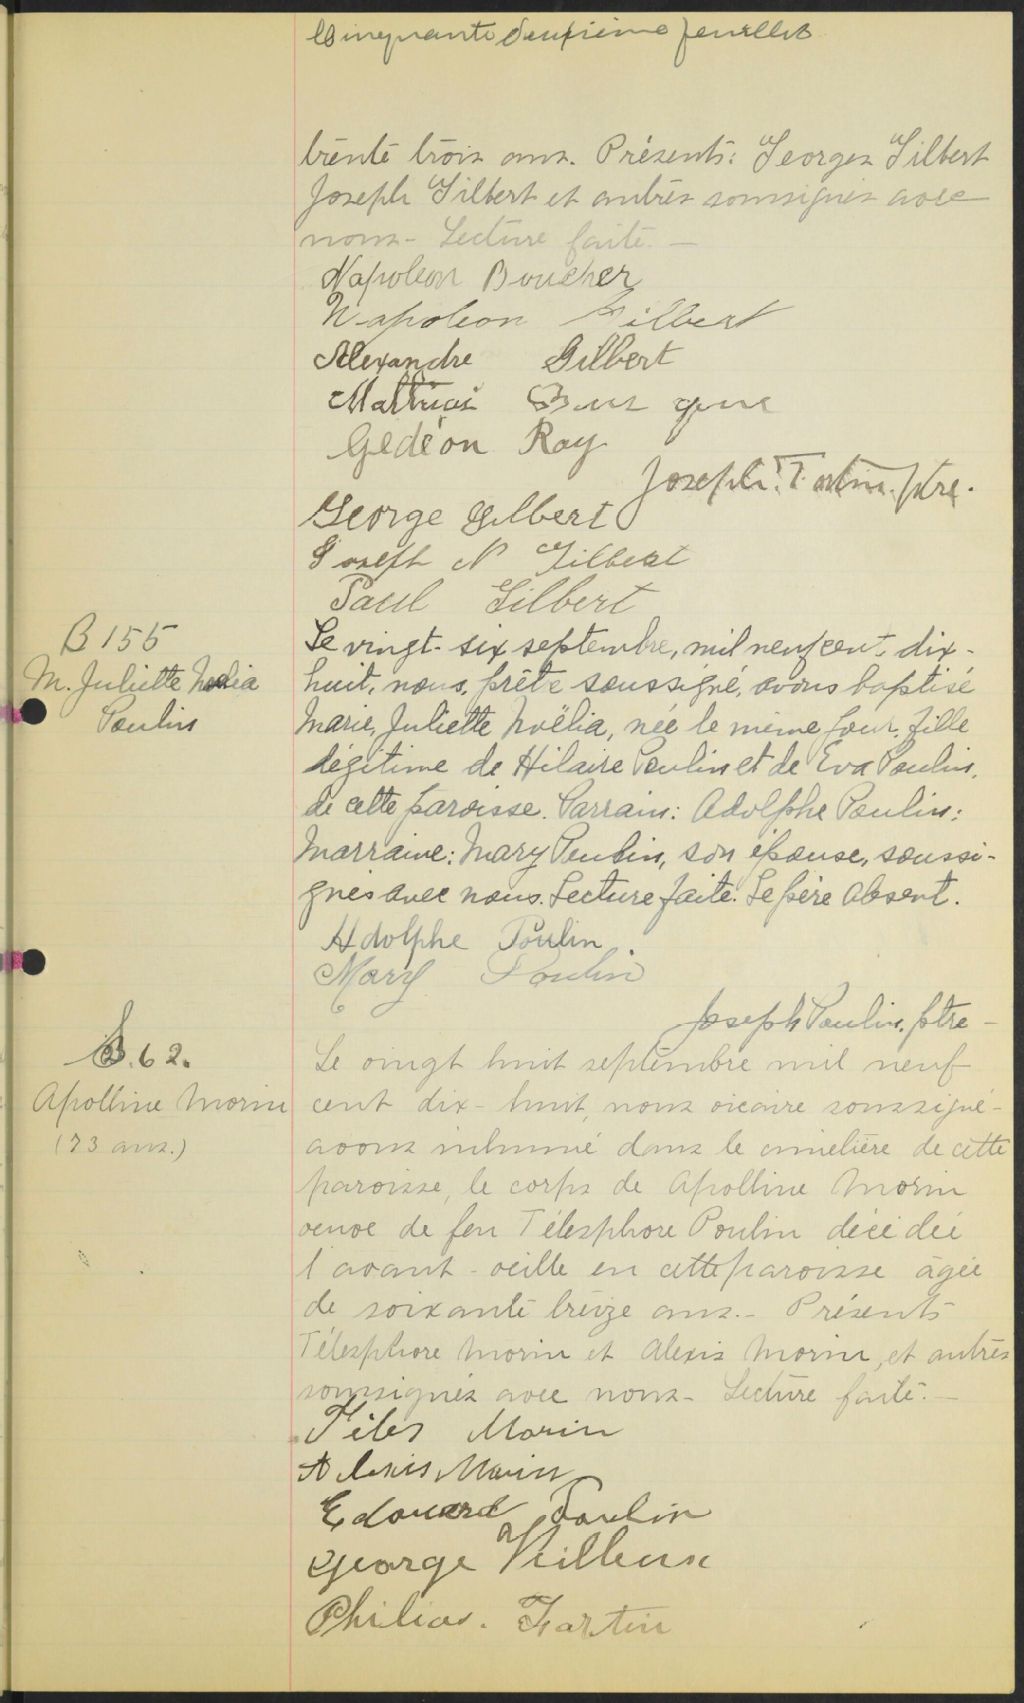 Cinquante deuxième feuillet
trente trois ans. Présents: Georges Gilbert
Joseph Gilbert et autres soussignés avec
nous - Lecture faite. -
Napoléon Boucher
Napoleon Gilbert
Alexandre Gilbert
Mathias
Gédéon Roy
Joseph. Fortin. ptre.
George Gilbert
Joseph N Gilbert
Paul Gilbert
B 155
M. Juliette Noëlia
Poulin
Le vingt-six septembre, mil neuf cent dix-
huit, nous, prêtre soussigné, avons baptisé
Marie, Juliette Noëlia, née le même jour, fille
légitime de Hilaire Poulin et de Eva Poulin,
de cette paroisse. Parrain: Adolphe Poulin:
Marraine: Mary Poulin, son épouse, soussi-
gnés avec nous. Lecture faite. Le père absent.
Adolphe Poulin.
Mary Poulin
Joseph Poulin, ptre -
S. 62.
Apolline Morin
(73 ans.)
Le vingt huit septembre mil neuf
cent dix-huit, nous vicaire soussigné -
avons inhumé dans le cimetière de cette
paroisse, le corps de Apolline Morin
veuve de feu Télesphore Poulin décédée
l'avant-veille en cette paroisse âgée
de soixante treize ans. - Présents
Télesphore Morin et Alexis Morin, et autres
soussignés avec nous - Lecture faite. -
Téles Morin
Alexis Morin
Edouard Poulin
George Veilleux
Philias. Fartin